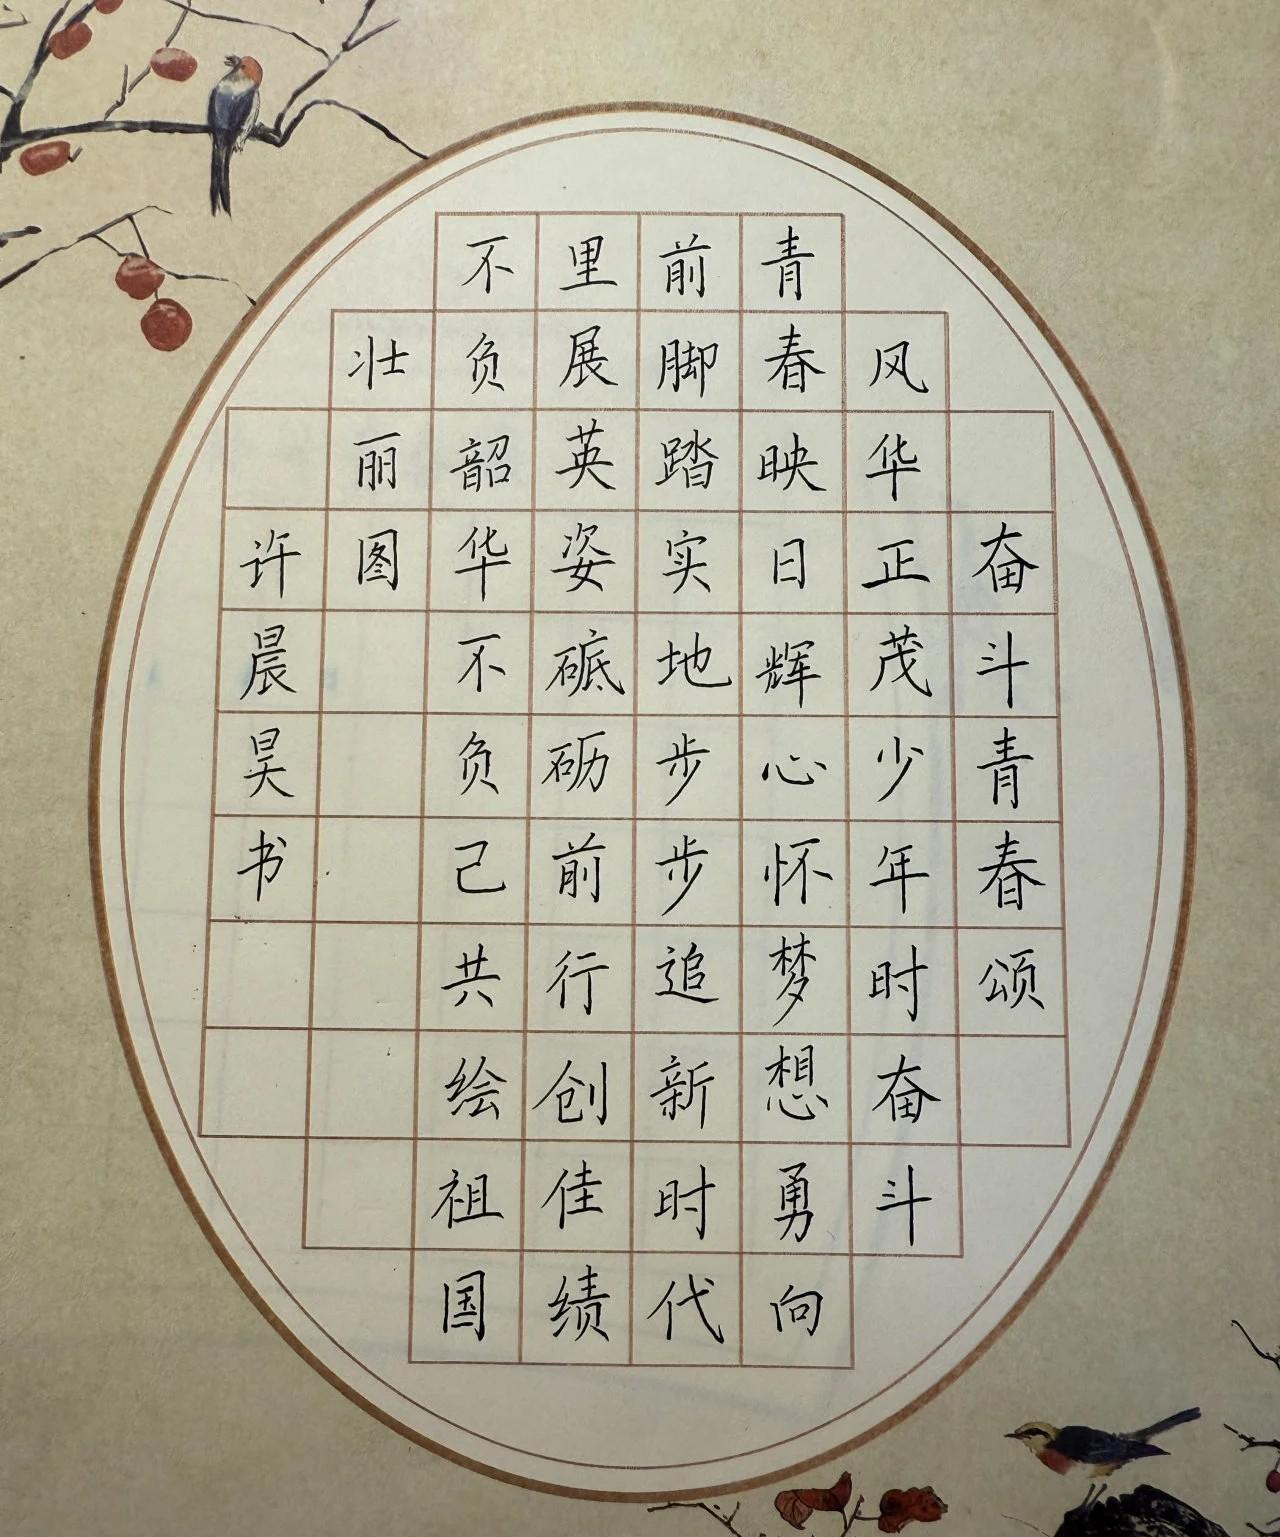 奋斗青春颂
风华正茂少年时奋斗
青春映日辉心怀梦想勇向
前脚踏实地步步追新时代
里展英姿砥砺前行创佳绩
不负韶华不负己共绘祖国
壮丽图
许晨昊书